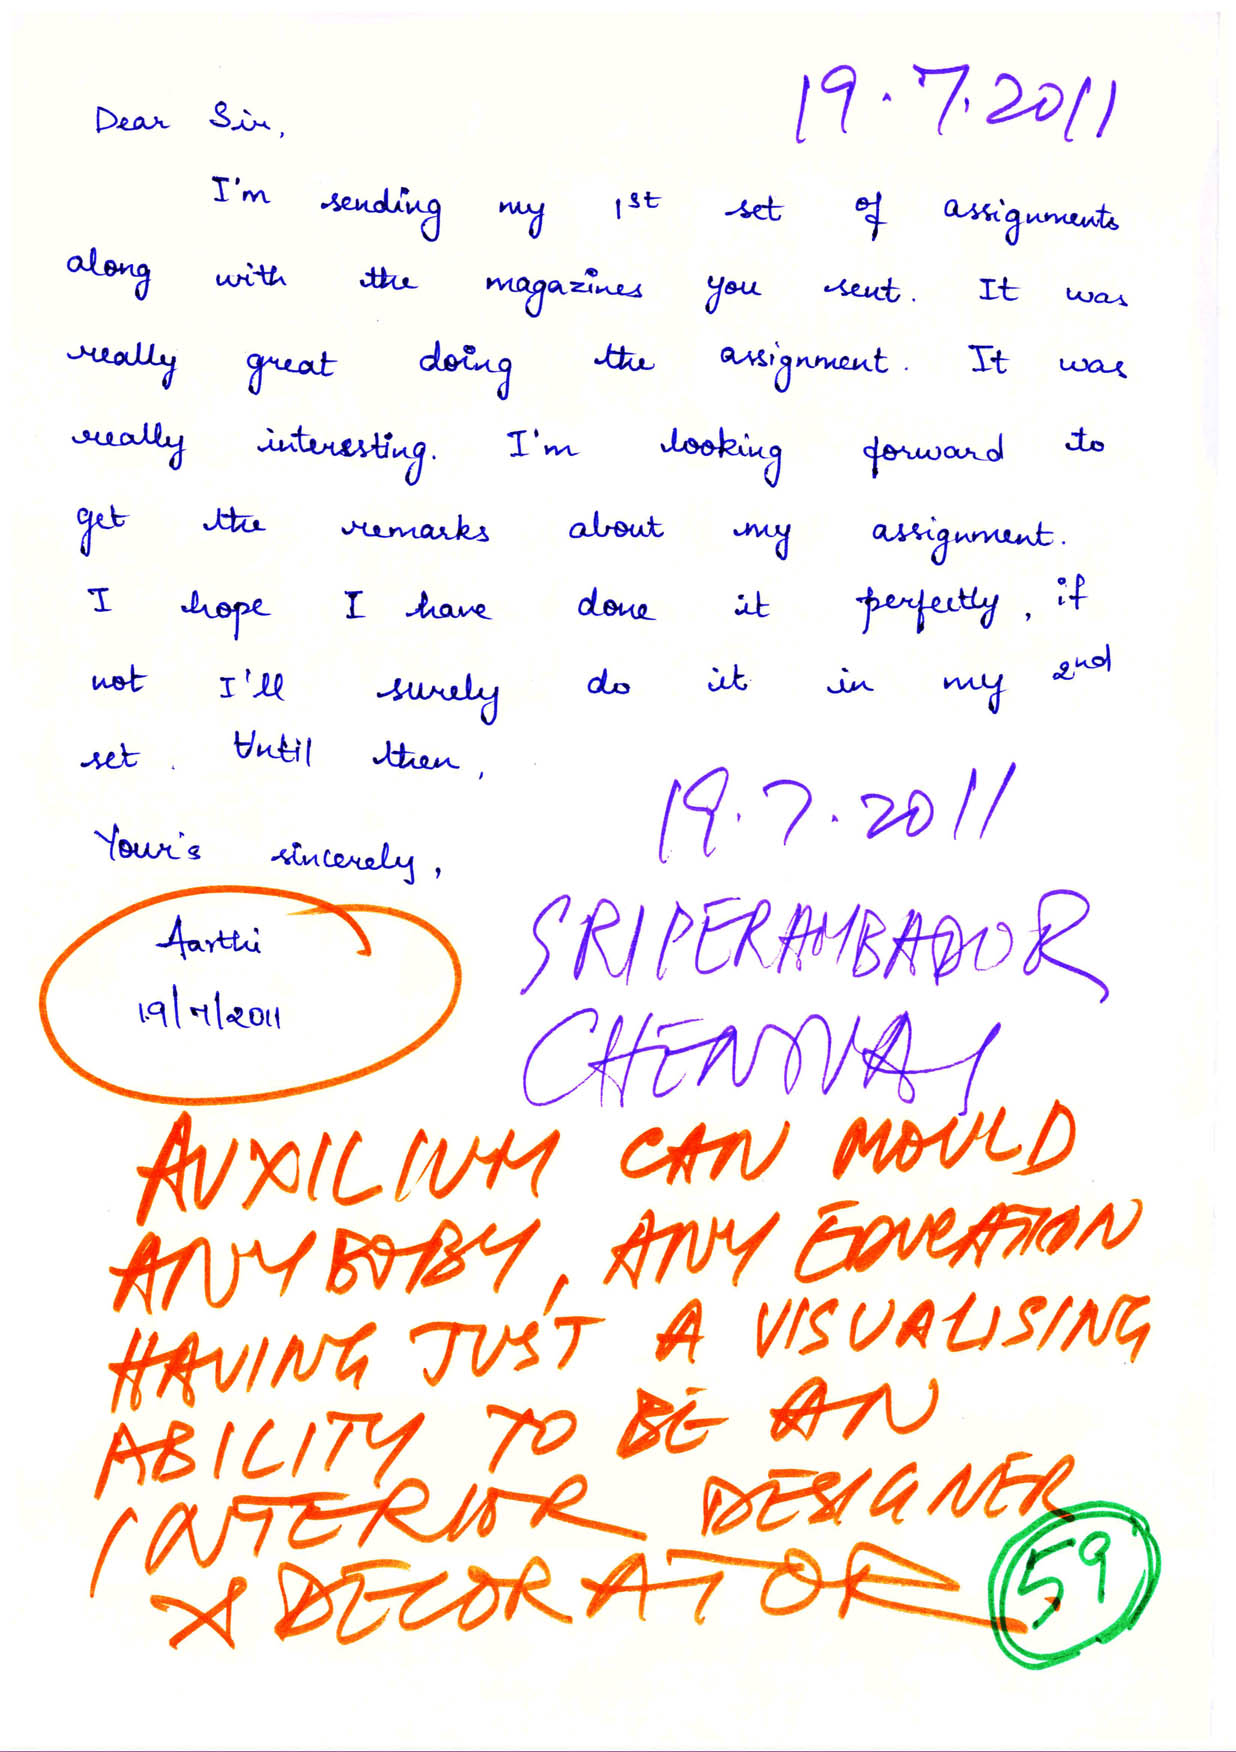 19.7.2011
Dear Sir,
I'm sending my 1st set of assignments
along with the magazines you sent. It was
really great doing the assignment. It was
really interesting. I'm looking forward to
get the remarks about my assignment.
I hope I have done it perfectly, if
not I'll surely do it in my 2nd
set. Until then,
19.7.2011
Your's sincerely,
SRIPERAMBADOR
Aarthi
19/7/2011
CHENNAI
AUXILIUM CAN MOULD
ANYBOBY, ANY EDUCATION
HAVING JUST A VISUALISING
ABILITY TO BE AN
INTERIOR DESIGNER
& DECORATOR
59